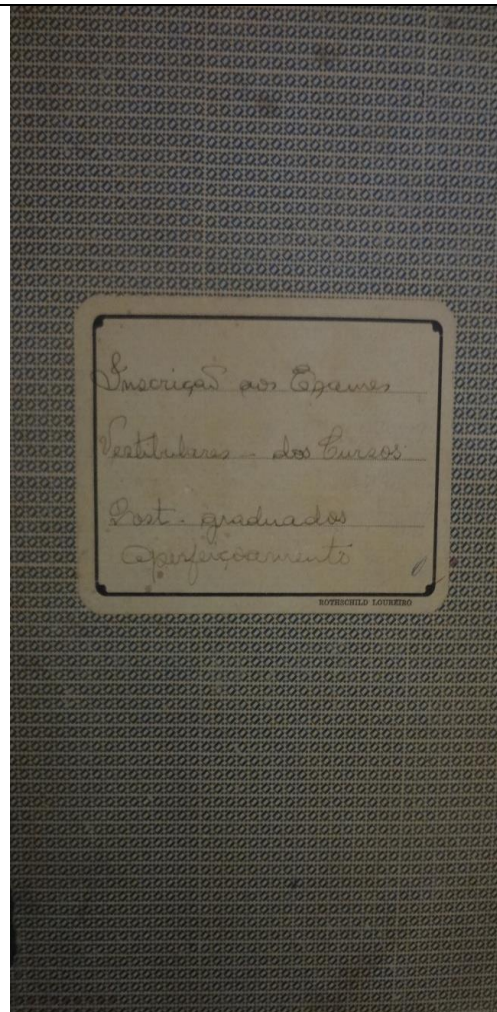 Inscrição aos Exames
Vestibulares - dos Cursos
Post. graduados
aperfeiçoamento
ROTHSCHILD LOUREIRO